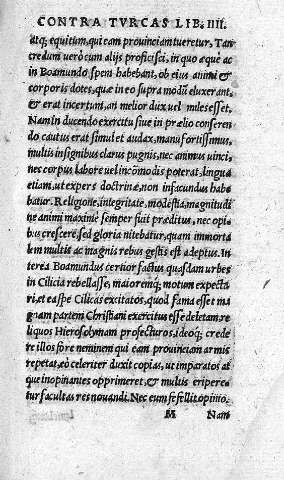 CONTRA TVRCAS LIB: IIII.
atq; equitum, qui eam prouinciam tueretur. Tan
credum uerò cum alijs proficisci, in quo æque ac
in Boamundo spem habebant, ob eius animi &
corporis dotes, quæ in eo supra modũ eluxerant,
& erat incertum, an melior dux uel miles esset.
Nam in ducendo exercitu siue in prælio conseren
do cautus erat simul et audax, manu fortissimus,
multis insignibus clarus pugnis, nec animus uinci,
nec corpus labore uel incõmodis poterat, lingua
etiam, ut expers doctrinæ, non infacundus habe
batur. Religione, integritate, modestia, magnitudi
ne animi maximè semper fuit præditus, nec opi
bus crescere, sed gloria nitebatur, quam immorta
lem multis ac magnis rebus gestis est adeptus. In
terea Boamundus certior factus quasdam urbes
in Cilicia rebellasse, maioremq; motum expecta
ri, et ea spe Cilicas excitatos, quod fama esset ma
gnam partem Christiani exercitus esse deletam, re
liquos Hierosolymam profecturos, ideoq; crede
re illos fore neminem qui eam prouinciam armis
repetat, eò celeriter duxit copias, ut imparatos at
que inopinantes opprimeret, & multis eripere
tur facultas res nouandi. Nec eum fefellit opinio.
M Nam